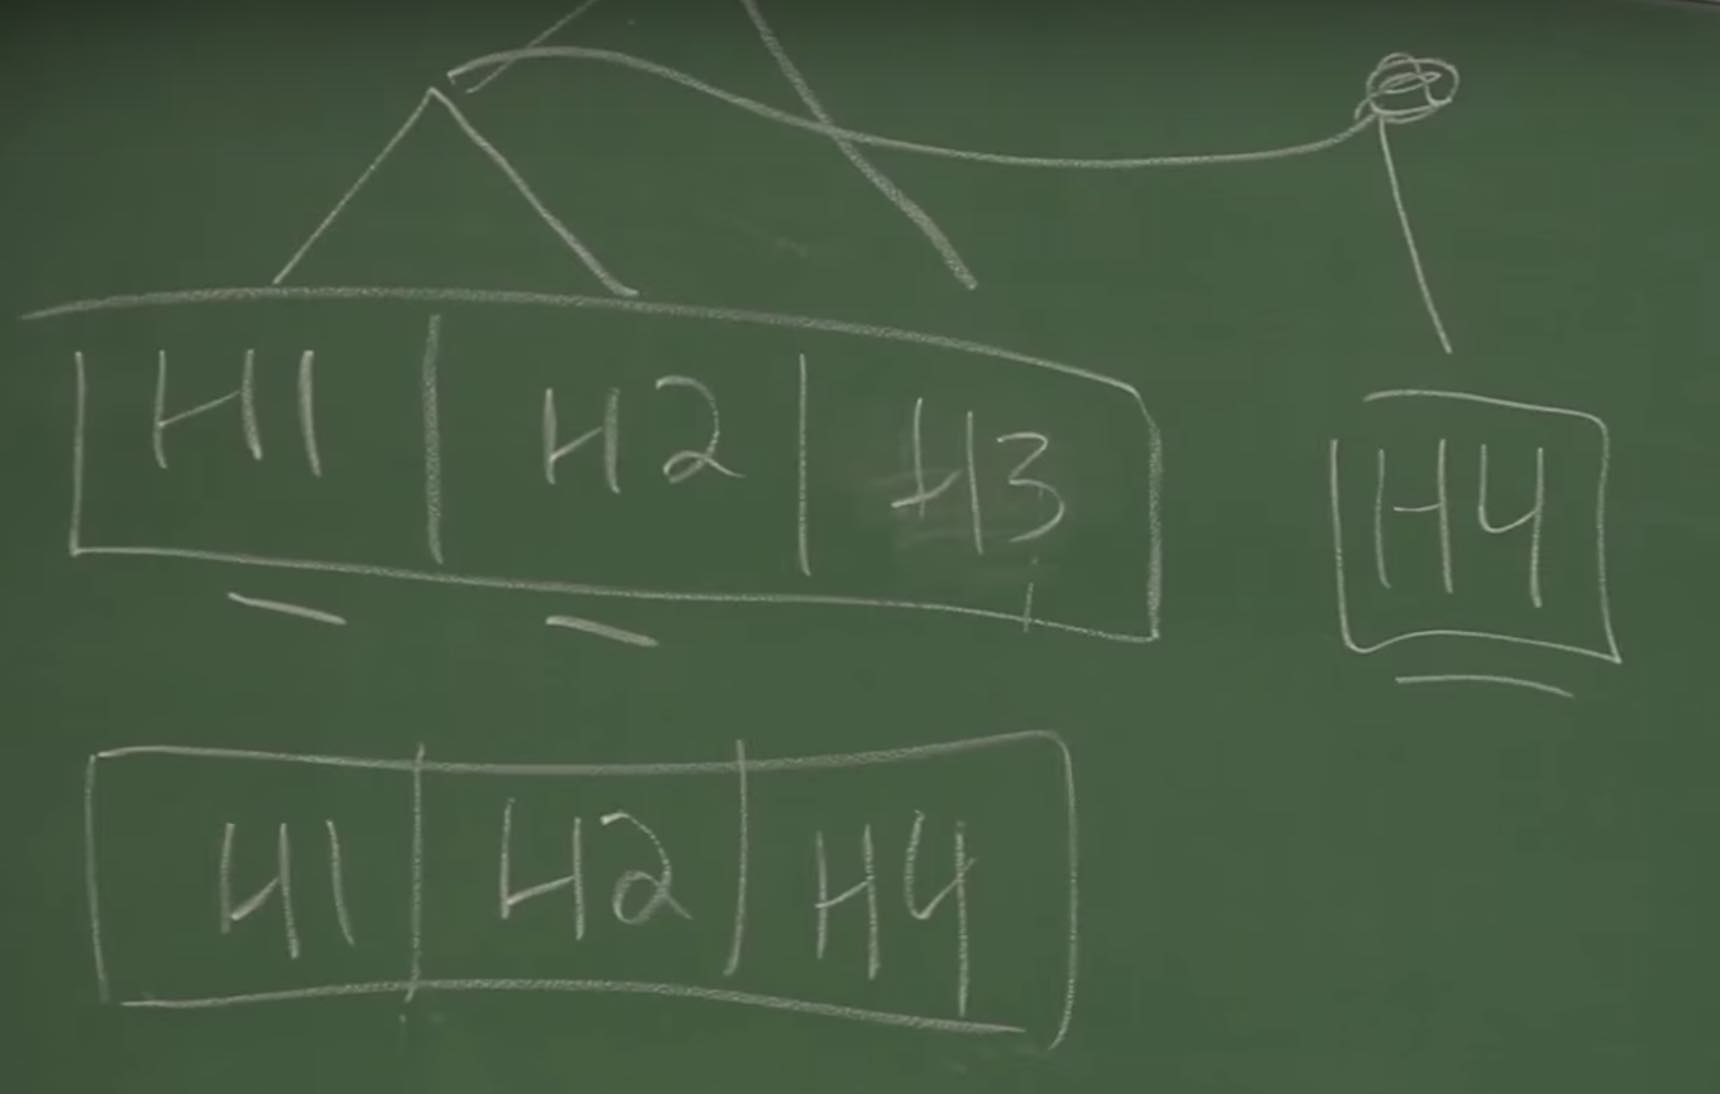 H1 H2 H3 H4
H1 H2 H4